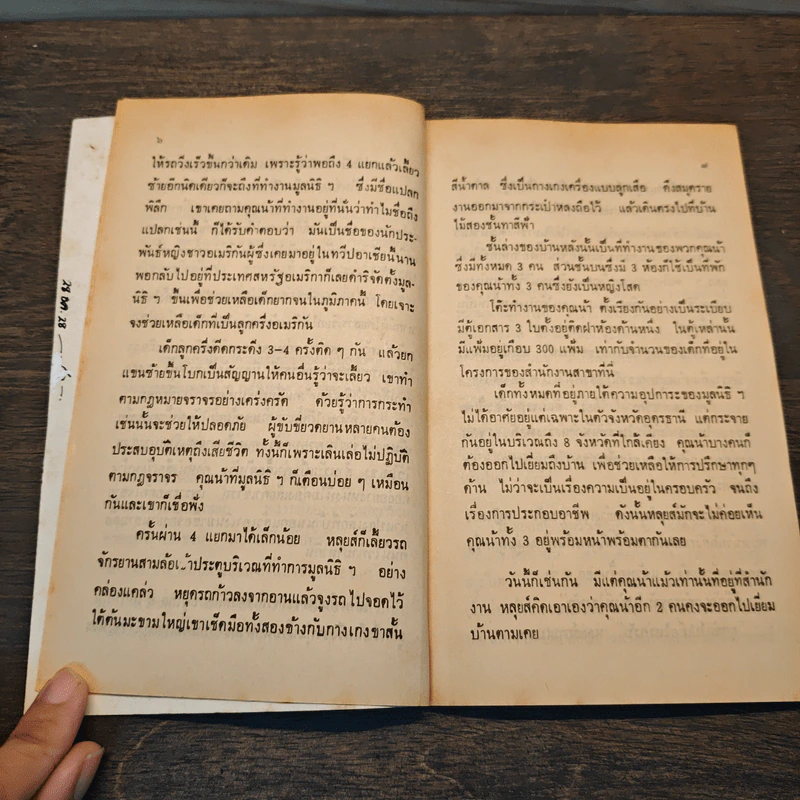 ๖
ให้รถวิ่งเร็วขึ้นกว่าเดิม เพราะรู้ว่าพอถึง 4 แยกแล้วเลี้ยว
ซ้ายอีกนิดเดียวก็จะถึงที่ทำงานมูลนิธิ ฯ ซึ่งมีชื่อแปลก
พิลึก เขาเคยถามคุณน้าที่ทำงานอยู่ที่นั่นว่าทำไมชื่อถึง
แปลกเช่นนี้ ก็ได้รับคำตอบว่า มันเป็นชื่อของนักประ-
พันธ์หญิงชาวอเมริกันผู้ซึ่งเคยมาอยู่ในทวีปอาเซียนี้นาน
พอกลับไปอยู่ที่ประเทศสหรัฐอเมริกาก็เลยดำริจัดตั้งมูล-
นิธิ ฯ ขึ้นเพื่อช่วยเหลือเด็กยากจนในภูมิภาคนี้ โดยเจาะ
จงช่วยเหลือเด็กที่เป็นลูกครึ่งอเมริกัน
เด็กลูกครึ่งดีดกระดิ่ง 3-4 ครั้งติด ๆ กัน แล้วยก
แขนซ้ายขึ้นโบกเป็นสัญญานให้คนอื่นรู้ว่าจะเลี้ยว เขาทำ
ตามกฎหมายจราจรอย่างเคร่งครัด ด้วยรู้ว่าการกระทำ
เช่นนั้นจะช่วยให้ปลอดภัย ผู้ขับขี่ยวดยานหลายคนต้อง
ประสบอุบัติเหตุถึงเสียชีวิต ทั้งนี้ก็เพราะเลินเล่อไม่ปฏิบัติ
ตามกฎจราจร คุณน้าที่มูลนิธิ ฯ ก็เตือนบ่อย ๆ เหมือน
กันและเขาก็เชื่อฟัง
ครั้นผ่าน 4 แยกมาได้เล็กน้อย หลุยส์ก็เลี้ยวรถ
จักรยานสามล้อเข้าประตูบริเวณที่ทำการมูลนิธิ ฯ อย่าง
คล่องแคล่ว หยุดรถก้าวลงจากอานแล้วจูงรถไปจอดไว้
ใต้ต้นมะขามใหญ่เขาเช็ดมือทั้งสองข้างกับกางเกงขาสั้น
๗
สีน้ำตาล ซึ่งเป็นกางเกงเครื่องแบบลูกเสือ ดึงสมุดราย
งานออกมาจากกระเป๋าหลังถือไว้ แล้วเดินตรงไปที่บ้าน
ไม้สองชั้นทาสีฟ้า
ชั้นล่างของบ้านหลังนั้นเป็นที่ทำงานของพวกคุณน้า
ซึ่งมีทั้งหมด 3 คน ส่วนชั้นบนซึ่งมี 3 ห้องก็ใช้เป็นที่พัก
ของคุณน้าทั้ง 3 คนซึ่งยังเป็นหญิงโสด
โต๊ะทำงานของคุณน้า ตั้งเรียงกันอย่างเป็นระเบียบ
มีตู้เอกสาร 3 ใบตั้งอยู่ติดฝาห้องด้านหนึ่ง ในตู้เหล่านั้น
มีแฟ้มอยู่เกือบ 300 แฟ้ม เท่ากับจำนวนของเด็กที่อยู่ใน
โครงการของสำนักงานสาขาที่นี่
เด็กทั้งหมดที่อยู่ภายใต้ความอุปการะของมูลนิธิ ฯ
ไม่ได้อาศัยอยู่แต่เฉพาะในตัวจังหวัดอุดรธานี แต่กระจาย
กันอยู่ในบริเวณถึง 8 จังหวัดที่ใกล้เคียง คุณน้าบางคนก็
ต้องออกไปเยี่ยมถึงบ้าน เพื่อช่วยเหลือให้การปรึกษาทุกๆ
ด้าน ไม่ว่าจะเป็นเรื่องความเป็นอยู่ในครอบครัว จนถึง
เรื่องการประกอบอาชีพ ดังนั้นหลุยส์มักจะไม่ค่อยเห็น
คุณน้าทั้ง 3 อยู่พร้อมหน้าพร้อมตากันเลย
วันนี้ก็เช่นกัน มีแต่คุณน้าแม้วเท่านั้นที่อยู่ที่สำนัก
งาน หลุยส์คิดเอาเองว่าคุณน้าอีก 2 คนคงจะออกไปเยี่ยม
บ้านตามเคย